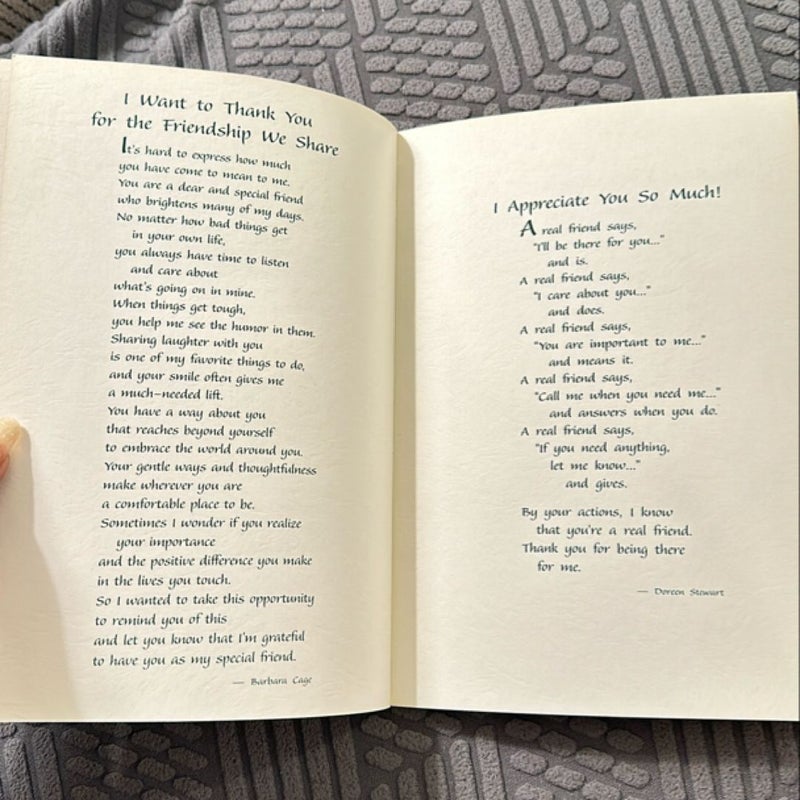 I Want to Thank You
for the Friendship We Share
It's hard to express how much
you have come to mean to me.
You are a dear and special friend
who brightens many of my days.
No matter how bad things get
in your own life,
you always have time to listen
and care about
what's going on in mine.
When things get tough,
you help me see the humor in them.
Sharing laughter with you
is one of my favorite things to do,
and your smile often gives me
a much-needed lift.
You have a way about you
that reaches beyond yourself
to embrace the world around you.
Your gentle ways and thoughtfulness
make wherever you are
a comfortable place to be.
Sometimes I wonder if you realize
your importance
and the positive difference you make
in the lives you touch.
So I wanted to take this opportunity
to remind you of this
and let you know that I'm grateful
to have you as my special friend.
— Barbara Cage
I Appreciate You So Much!
A real friend says,
"I'll be there for you..."
and is.
A real friend says,
"I care about you..."
and does.
A real friend says,
"You are important to me..."
and means it.
A real friend says,
"Call me when you need me..."
and answers when you do.
A real friend says,
"If you need anything,
let me know..."
and gives.
By your actions, I know
that you're a real friend.
Thank you for being there
for me.
— Doreen Stewart